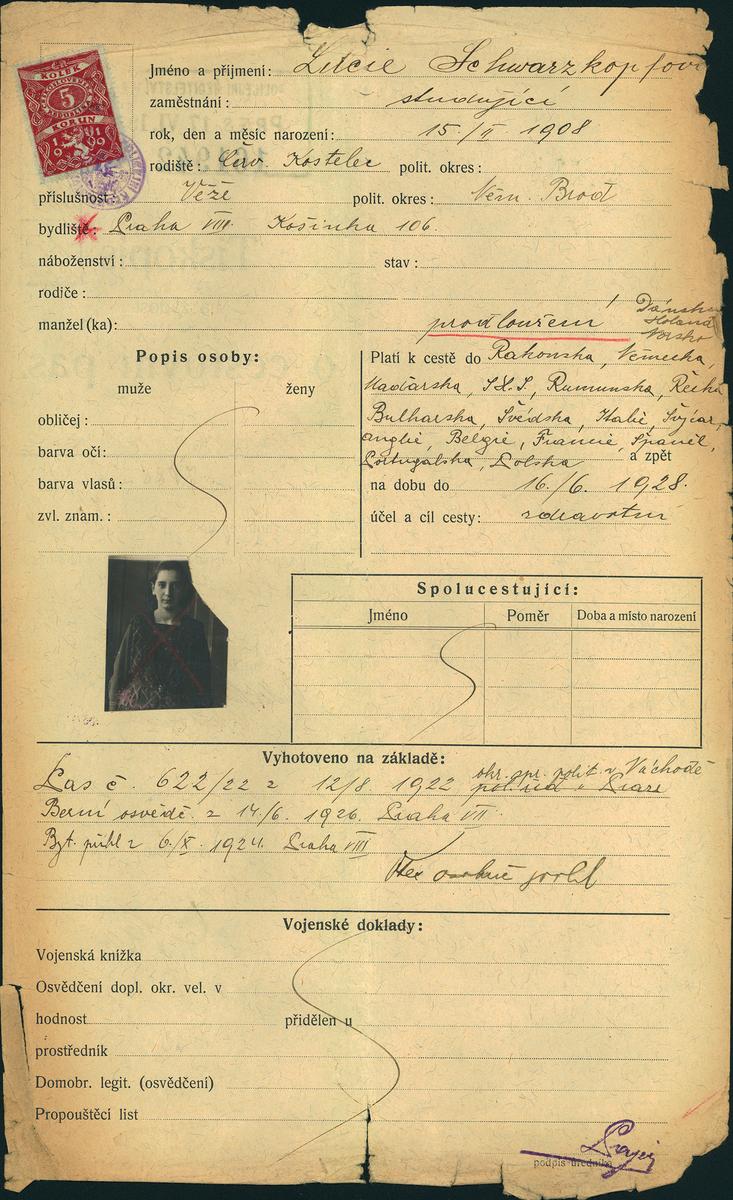 KOLEK
5
KORUN
19 19
Jméno a příjmení: Lucie Schwarzkopfová
zaměstnání: studující
rok, den a měsíc narození: 15./II 1908
rodiště: Červ. Kostelec polit. okres:
příslušnost: Věže polit. okres: Něm. Brod
bydliště: Praha VIII. Košinka 106.
náboženství: stav:
rodiče:
manžel(ka): prodloužení
Dánska
Holand
Norsko
Popis osoby:
muže ženy
obličej:
barva očí:
barva vlasů:
zvl. znam.:
Platí k cestě do Rakouska, Německa,
Maďarska, S.H.S., Rumunska, Řecka
Bulharska, Švédska, Italie, Švýcar,
Anglie, Belgie, Francie, Španěl,
Portugalska, Polska a zpět
na dobu do 16./6. 1928.
účel a cíl cesty: zdravotní
Spolucestující:
Jméno Poměr Doba a místo narození
Vyhotoveno na základě:
Pas č. 622/22 z 12/8 1922 okr. spr. polit. v Náchodě
Berní osvědč. z 14/6. 1926. Praha VII
Byt. přihl z 6./X. 1924. Praha VIII
osobně
Vojenské doklady:
Vojenská knížka
Osvědčení dopl. okr. vel. v
hodnost přidělen u
prostředník
Domobr. legit. (osvědčení)
Propouštěcí list
podpis úředníka